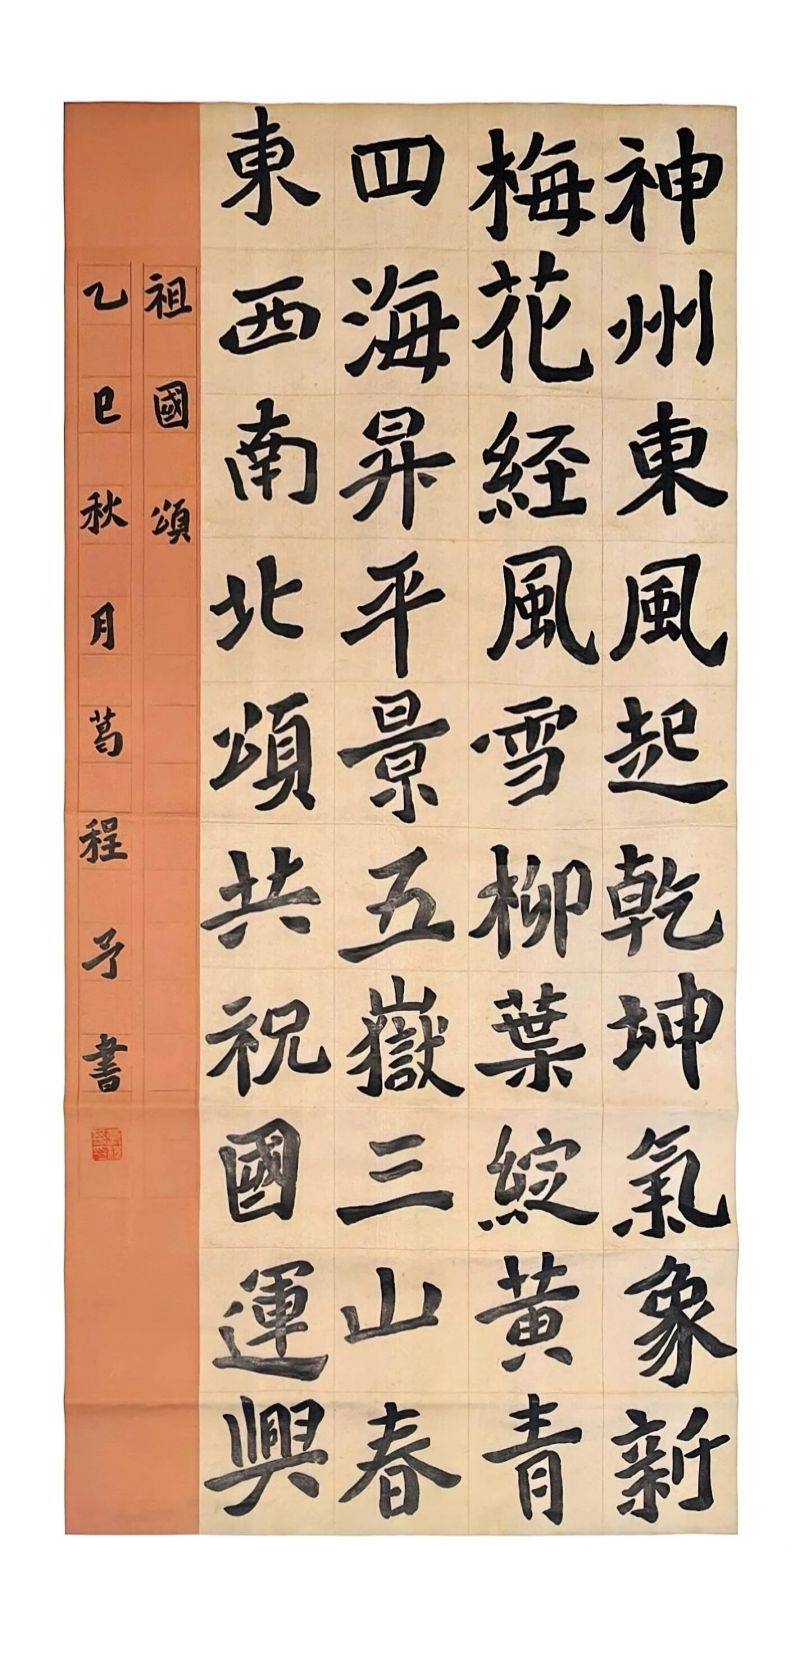 神州東風起乾坤氣象新
梅花経風雪柳葉綻黄青
四海昇平景五嶽三山春
東西南北頌共祝國運興
祖國頌
乙巳秋月葛程予書